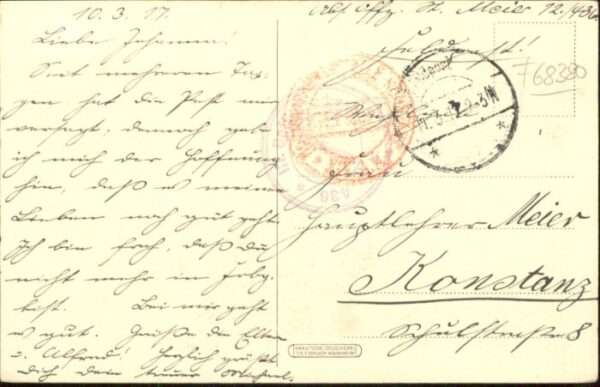 10.3.17.
Liebe Johanna!
Seit mehreren Ta-
gen hat die Post nun
versagt, dennoch gebe
ich mich der Hoffnung
hin, daß es meinen
Lieben noch gut geht
Ich bin froh, daß du
nicht mehr in Frbg.
bist. Bei mir geht
es gut. Grüße die Eltern
u. Alfred! Herzlich grüßt
Dich dein treuer
Abs. Offz. St. Meier 12./436
Feldpost!
68390
Frau
Hauptlehrer Meier
Konstanz
Schulstraße 8